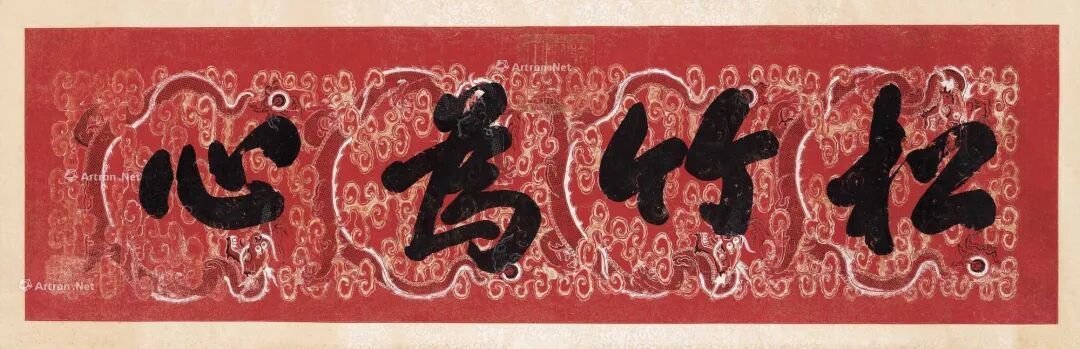 松竹為心
Artron.Net
Artron.Net
Artron.Net